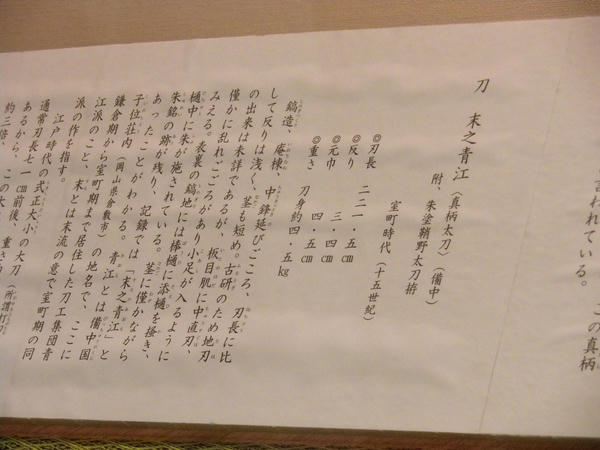 言われている。 この真柄
刀 末之青江（真柄太刀）（備中）
附、朱塗鞘野太刀拵
室町時代（十五世紀）
◎刃長 二二一・五㎝
◎反り 三・四㎝
◎元巾 四・五㎝
◎重さ 刀身約四・五㎏
鎬造、庵棟、中鋒延びごころ、刃長に比
して反りは浅く、茎も短め。古研のため地刃
の出来は未詳であるが、板目肌に中直刃、
僅かに乱れごころがあり小足が入るように
みえる。表裏の鎬地には棒樋に添樋を掻き、
樋中に朱が施されている。茎に僅かながら
朱銘の跡が残り、記録では「末之青江」と
あったことがわかる。青江とは備中国
子位荘内（岡山県倉敷市）の地名で、ここに
鎌倉期から室町期まで居住した刀工集団青
江派のこと、末とは末流の意で室町期の同
派の作を指す。
江戸時代の式正大小の大刀（所謂打刀
通常刃長七一㎝前後、重さ
あるから、この大
約三倍、